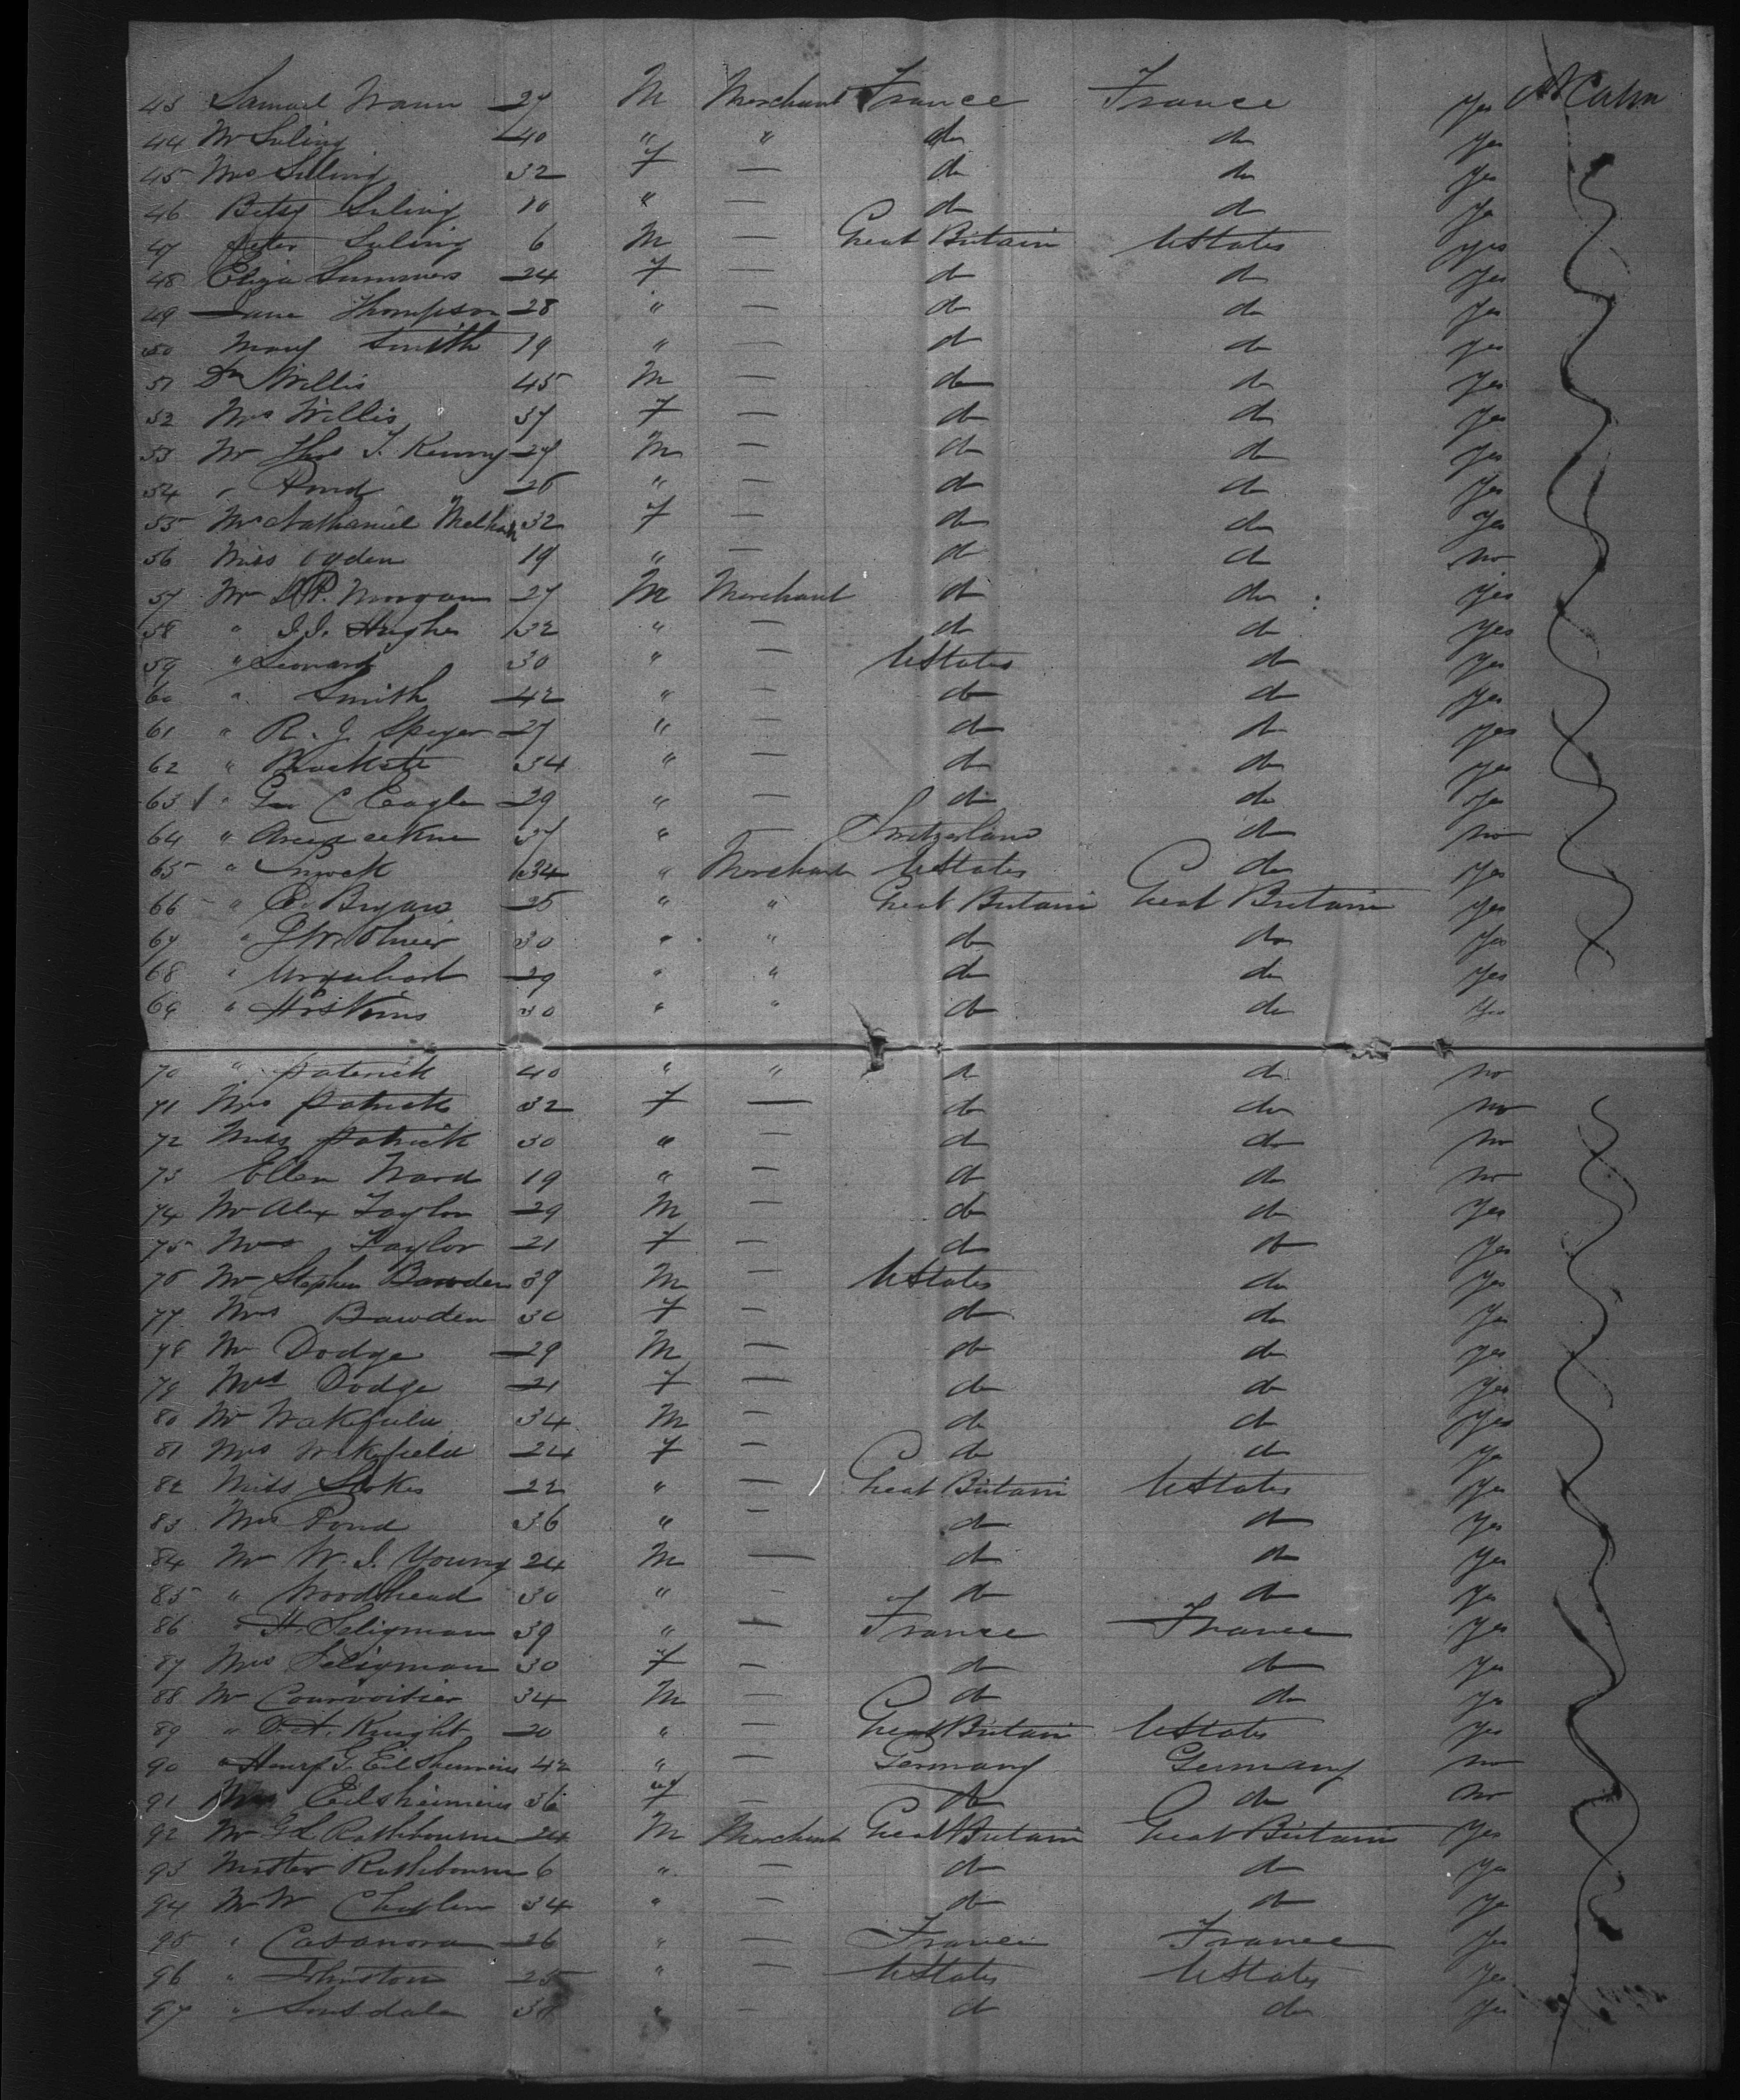 43 Samuel Wann 27 M Merchant France France yes N Cahn
44 Mr Suling 40 " " do do yes
45 Mrs Suling 32 F — do do yes
46 Betsy Suling 10 " — do do ye
47 Peter Suling 6 M — Great Britain UStates yes
48 Eliza Summers 24 F — do do yes
49 Jane Thompson 28 " — do do yes
50 Mary Smith 19 " — do do yes
51 Dr Willis 45 M — do do yes
52 Mrs Willis 37 F — do do yes
53 Mr Thos F. Kenny 27 M — do do yes
54 " Pond 26 " — do do yes
55 Mrs Nathaniel 32 F — do do yes
56 Miss Ogden 19 " — do do no
57 Mr D.P. Morgan 27 M Merchant do do yes
58 " J.J. Hughes 32 " — do do yes
59 " Leonard 30 " — UStates do yes
60 " Smith 42 " — do do yes
61 " R. J. Speyer 27 " — do do yes
62 " 34 " — do do yes
63 " Geo C Eagle 29 " — do do yes
64 " 37 " — Switzerland do no
65 " 34 " Merchant UStates do yes
66 " C. Bryan 25 " " Great Britain Great Britain yes
67 " J W Oliver 30 " " do do yes
68 " Urquhart 29 " " do do yes
69 " Hoskins 30 " " do do yes
70 " Paterick 40 " " do do no
71 Mrs Patrick 32 F — do do no
72 Miss Patrick 30 " — do do no
73 Ellen Ward 19 " — do do no
74 Mr Alex Taylor 29 M — do do yes
75 Mrs Taylor 21 F — do do yes
76 Mr Stephen Bawden 39 M — UStates do yes
77 Mrs Bawden 30 F — do do ye
78 Mr Dodge 29 M — do do yes
79 Mrs Dodge 21 F — do do yes
80 Mr Wakefield 34 M — do do yes
81 Mrs Wakefield 24 F — do do ye
82 Miss Stokes 22 " — Great Britain UStates yes
83 Mrs Pond 36 " — do do yes
84 Mr W. J. Young 24 M — do do yes
85 " Woodhead 30 " — do do yes
86 " H. Seligman 39 " — France France yes
87 Mrs Seligman 30 F — do do yes
88 Mr Courvoisier 34 M — do do yes
89 " D.A. Knight 20 " — Great Britain UStates yes
90 " Henry G. Eilshemius 42 " — Germany Germany no
91 Mrs Eilshemius 36 F — do do no
92 Mr Rathbourne 24 M Merchant Great Britain Great Britain yes
93 Master Rathbourne 6 " — do do ye
94 Mr W Chaplin 34 " — do do ye
95 " Casanova 26 " — France France yes
96 " Johnston 25 " — UStates UStates yes
97 " Lonsdale 30 " — do do yes